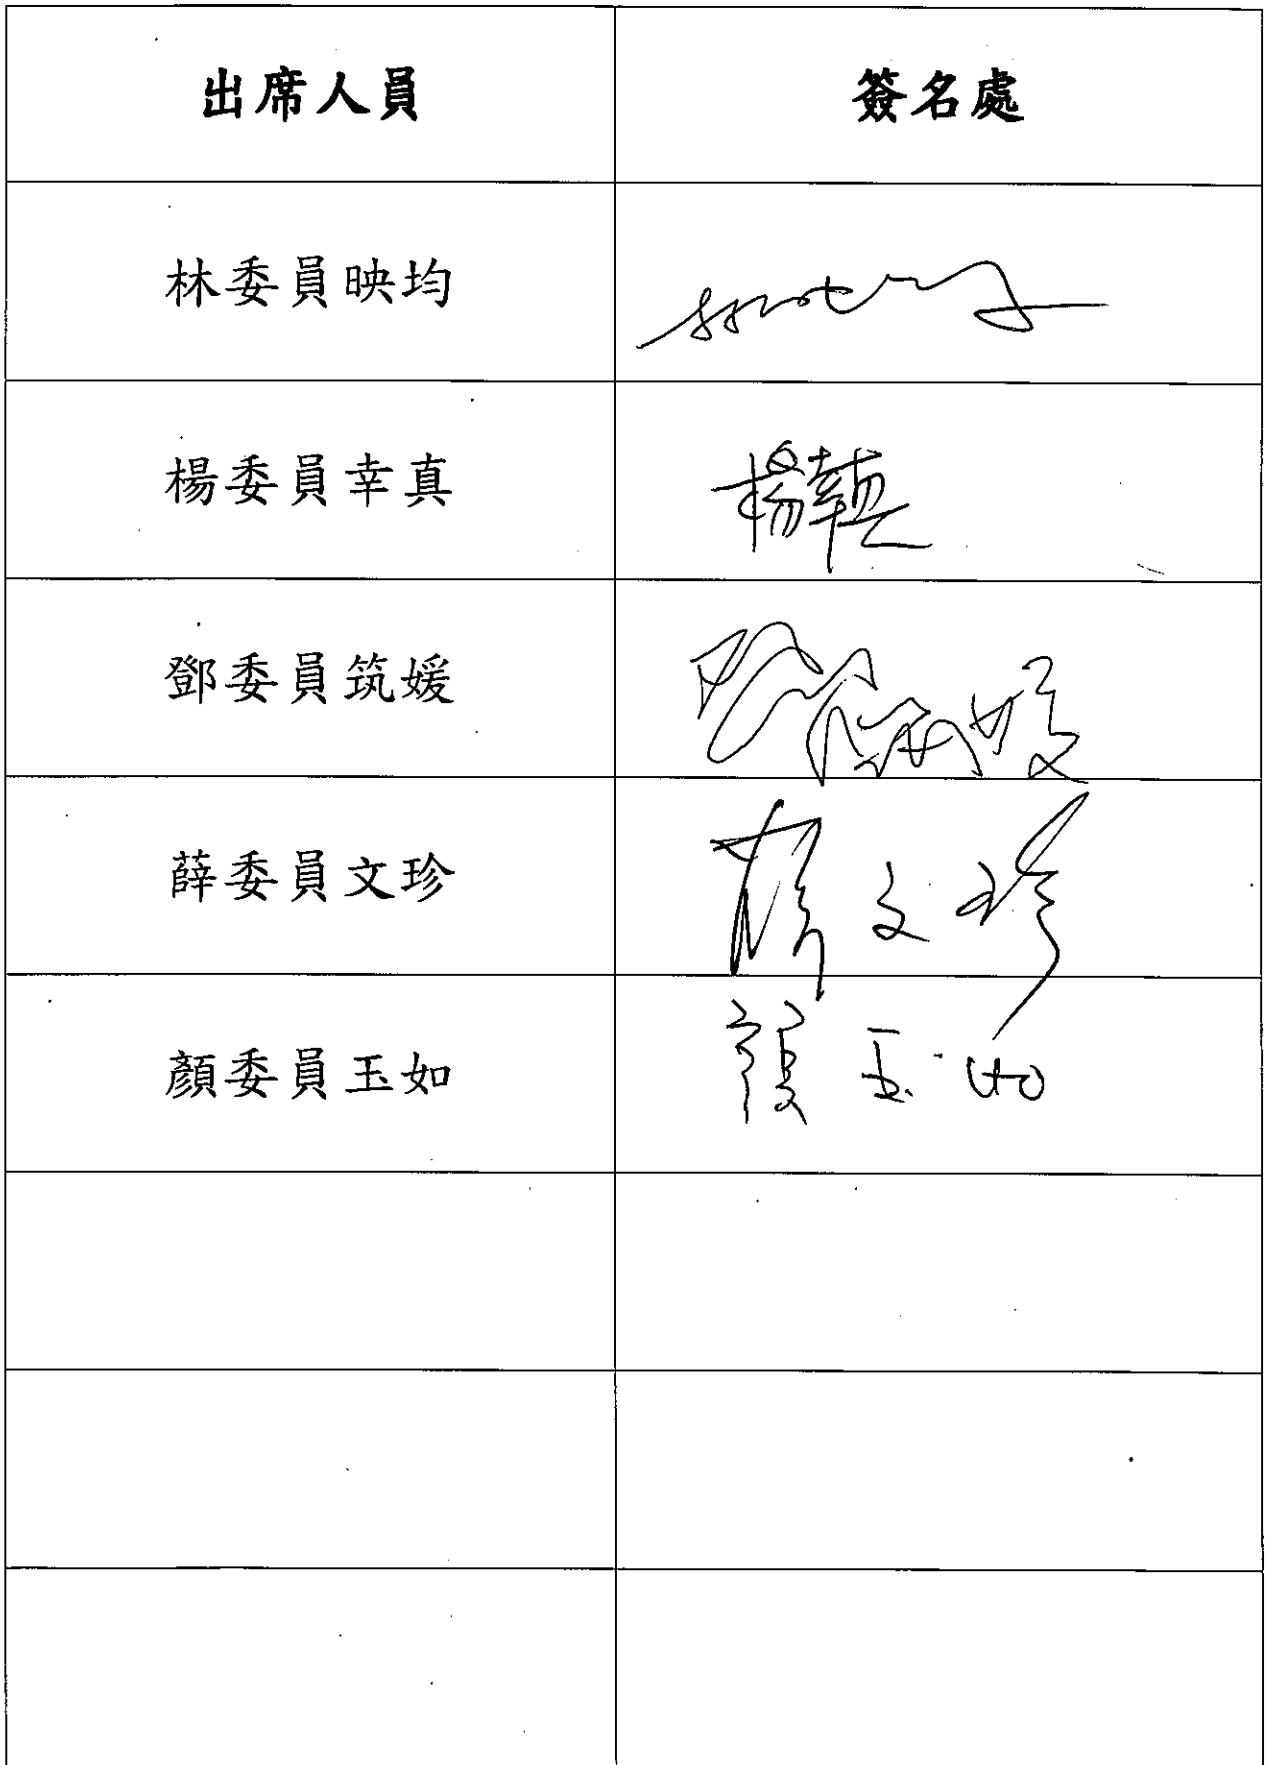 出席人員 簽名處
林委員映均
楊委員幸真 楊幸真
鄧委員筑媛
薛委員文珍 薛文珍
顏委員玉如 顏玉如